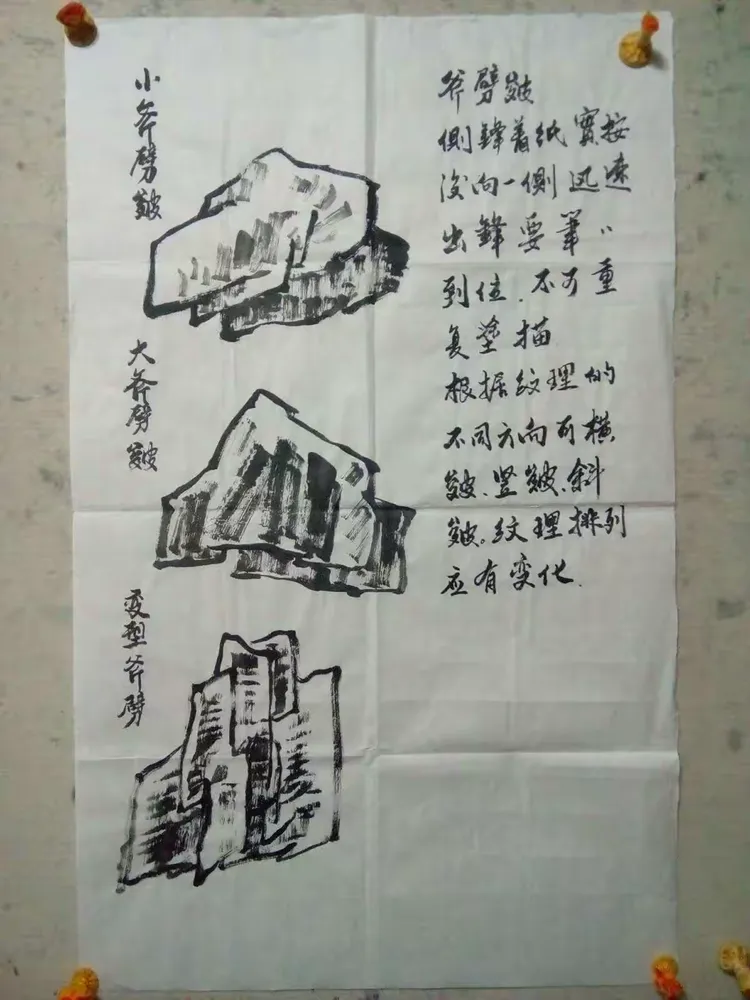 小斧劈皴
大斧劈皴
变型斧劈
斧劈皴
側鋒着纸實按
後向一側迅速
出鋒要筆〃
到位.不可重
复塗描
根据纹理的
不同方向可横
皴、竖皴、斜
皴。纹理排列
应有变化.